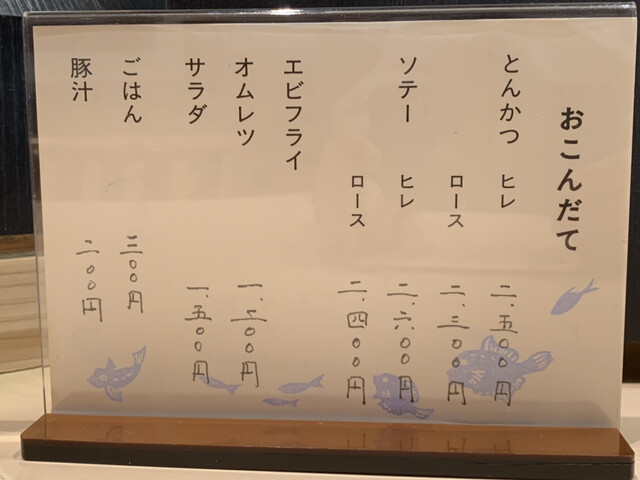 おこんだて
とんかつ ヒレ 二、五〇〇円
ロース 二、三〇〇円
ソテー ヒレ 二、六〇〇円
ロース 二、四〇〇円
エビフライ
オムレツ 一、二〇〇円
サラダ 一、五〇〇円
ごはん 三〇〇円
豚汁 二〇〇円